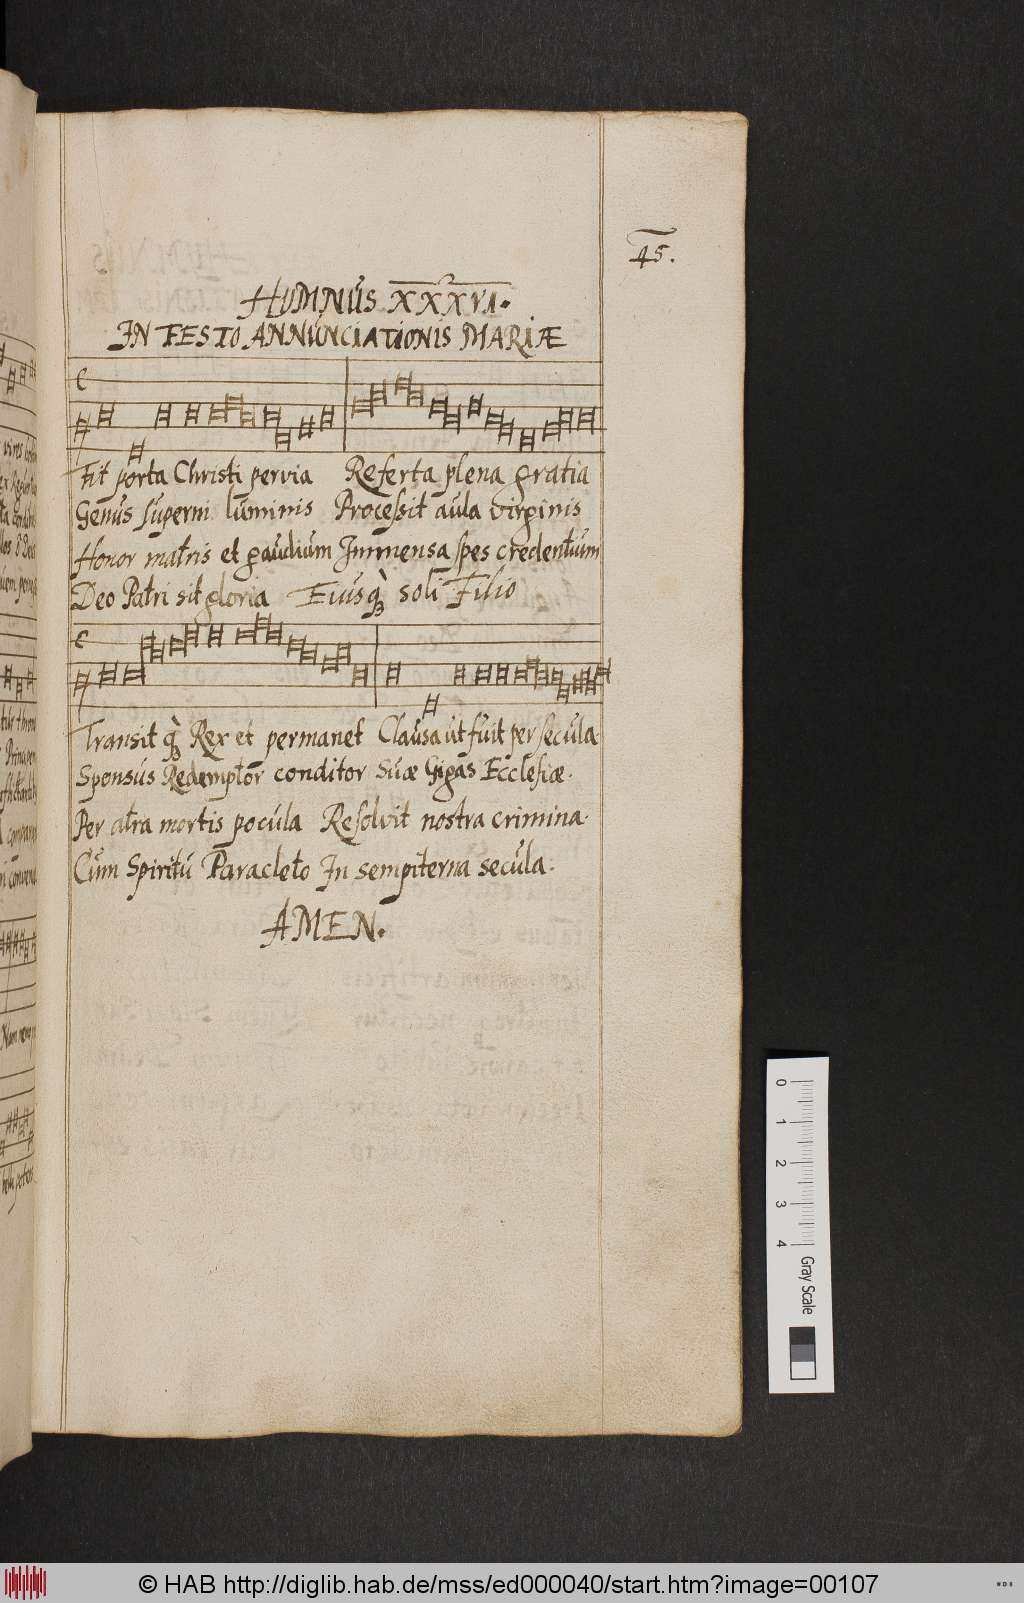 45.
HYMNUS XXXXVI.
IN FESTO ANNUNCIATIONIS MARIÆ
Fit porta Christi pervia Referta plena gratia
Genus superni luminis Processit aula virginis
Honor matris et gaudium Immensa spes credentium
Deo Patri sit gloria Eiusq̀ soli Filio
Transit q̀ Rex et permanet Clausa ut fuit per secula
Sponsus Redemptor conditor Suæ Gigas Ecclesiæ.
Per atra mortis pocula Resolvit nostra crimina.
Cum Spiritu Paracleto In sempiterna secula.
AMEN.
0 1 2 3 4 Gray Scale
© HAB http://diglib.hab.de/mss/ed000040/start.htm?image=00107